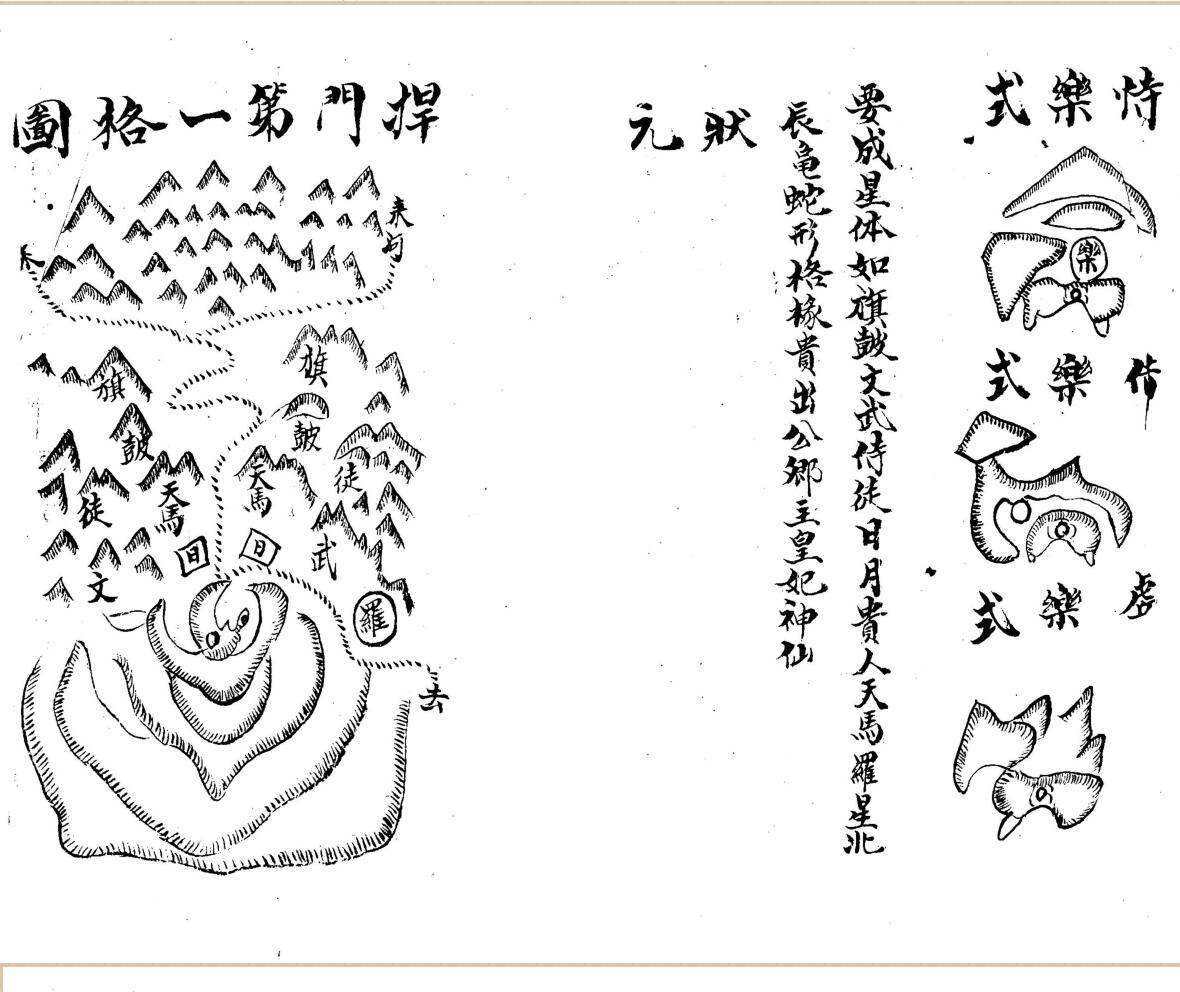 恃樂式
樂
借樂式
虚樂式
要成星体如旗鼓文武侍徒日月貴人天馬羅星北
辰龜蛇形格椽貴出公卿主皇妃神仙
狀元
捍門第一格圖
来何
来
旗
旗
鼓
鼓
天馬
天馬
徒
徒
日
武
文
羅
去